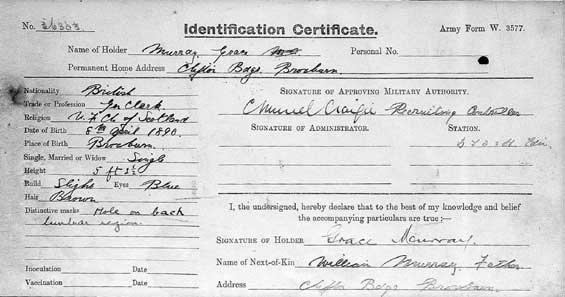 No. 26363. Identification Certificate. Army Form W. 3577.
Name of Holder Murray, Grace Personal No.
Permanent Home Address Clifton Bdgs. Broxburn.
Nationality British
Trade or Profession Gen Clerk.
Religion U. F. Ch. of Scotland
Date of Birth 8th April 1890.
Place of Birth Broxburn.
Single, Married or Widow Single
Height 5 ft
Build Slight Eyes Blue
Hair Brown
Distinctive marks Mole on back
lumbar region.
Inoculation Date
Vaccination Date
Signature of Approving Military Authority.
Recruiting
Signature of Administrator. Station.
Edin.
I, the undersigned, hereby declare that to the best of my knowledge and belief
the accompanying particulars are true:—
Signature of Holder Grace Murray.
Name of Next-of-Kin William Murray. Father
Address Clifton Bdgs Broxburn.